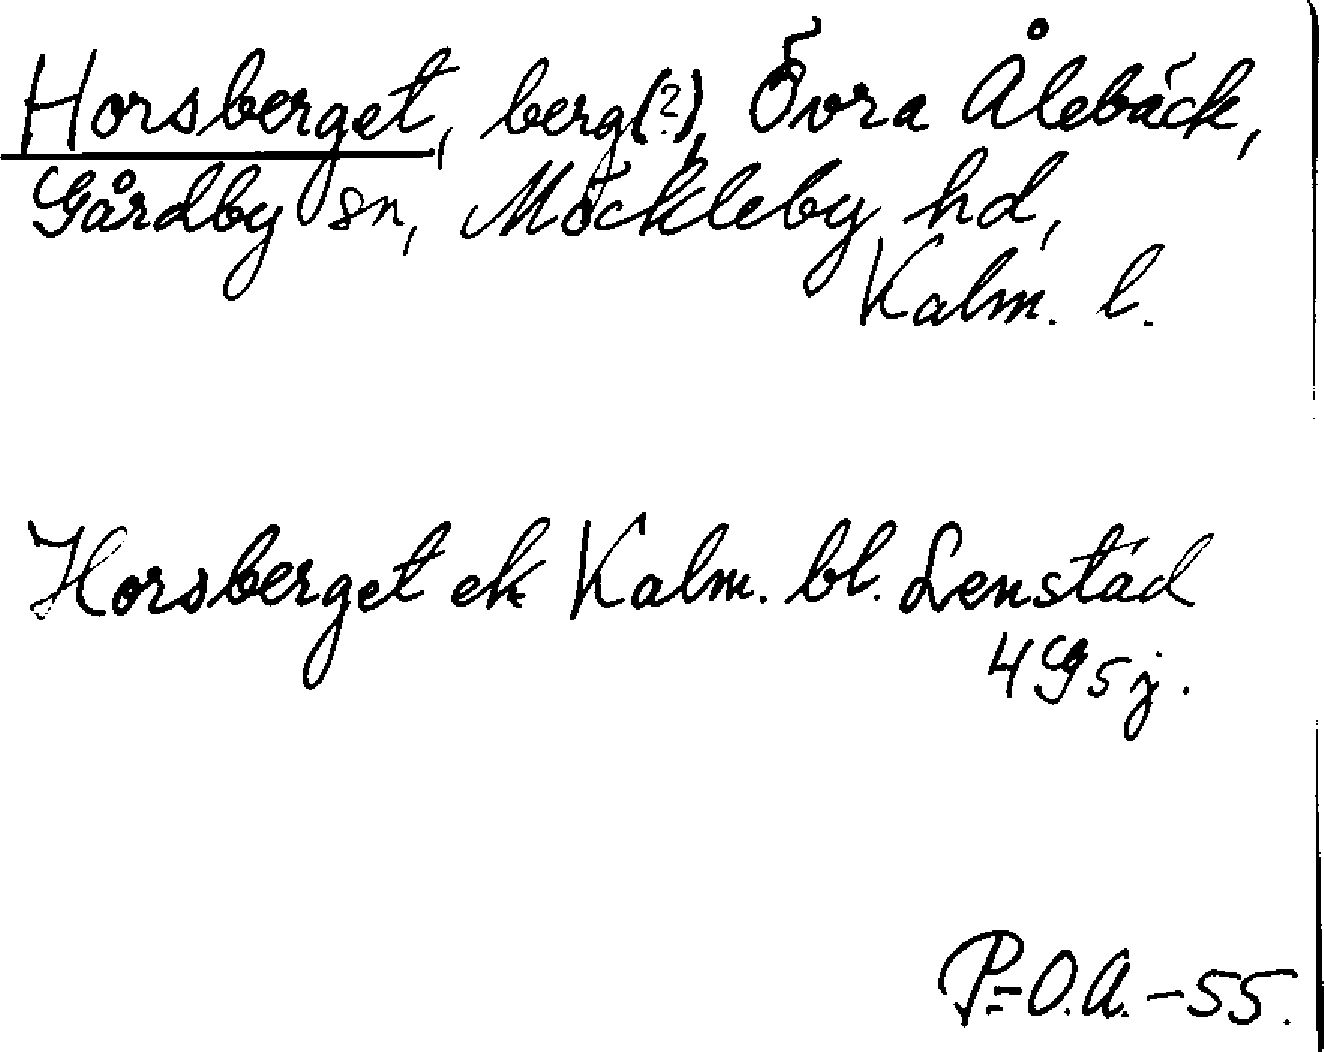 Horsberget, berg(?), Övra Ålebäck,
Gårdby sn, Möckleby hd,
Kalm. l.
Horsberget ek Kalm. bl. Lenstad
4G5j.
P-O.A.-55.